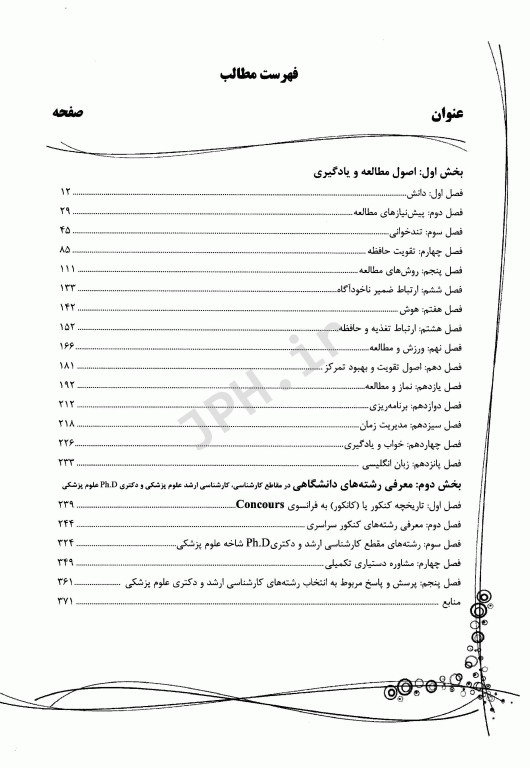 فهرست مطالب
عنوان صفحه
بخش اول: اصول مطالعه و یادگیری
فصل اول: دانش ۱۲
فصل دوم: پیش‌نیازهای مطالعه ۲۹
فصل سوم: تندخوانی ۴۵
فصل چهارم: تقویت حافظه ۸۵
فصل پنجم: روش‌های مطالعه ۱۱۱
فصل ششم: ارتباط ضمیر ناخودآگاه ۱۳۳
فصل هفتم: هوش ۱۴۲
فصل هشتم: ارتباط تغذیه و حافظه ۱۵۲
فصل نهم: ورزش و مطالعه ۱۶۶
فصل دهم: اصول تقویت و بهبود تمرکز ۱۸۱
فصل یازدهم: نماز و مطالعه ۱۹۲
فصل دوازدهم: برنامه‌ریزی ۲۱۲
فصل سیزدهم: مدیریت زمان ۲۱۸
فصل چهاردهم: خواب و یادگیری ۲۲۶
فصل پانزدهم: زبان انگلیسی ۲۳۳
بخش دوم: معرفی رشته‌های دانشگاهی در مقاطع کارشناسی، کارشناسی ارشد علوم پزشکی و دکتری Ph.D علوم پزشکی
فصل اول: تاریخچه کنکور یا (کانکور) به فرانسوی Concours ۲۳۹
فصل دوم: معرفی رشته‌های کنکور سراسری ۲۴۴
فصل سوم: رشته‌های مقطع کارشناسی ارشد و دکتری Ph.D شاخه علوم پزشکی ۳۲۴
فصل چهارم: مشاوره دستیاری تکمیلی ۳۴۹
فصل پنجم: پرسش و پاسخ مربوط به انتخاب رشته‌های کارشناسی ارشد و دکتری علوم پزشکی ۳۶۱
منابع ۳۷۱
JPH.ir